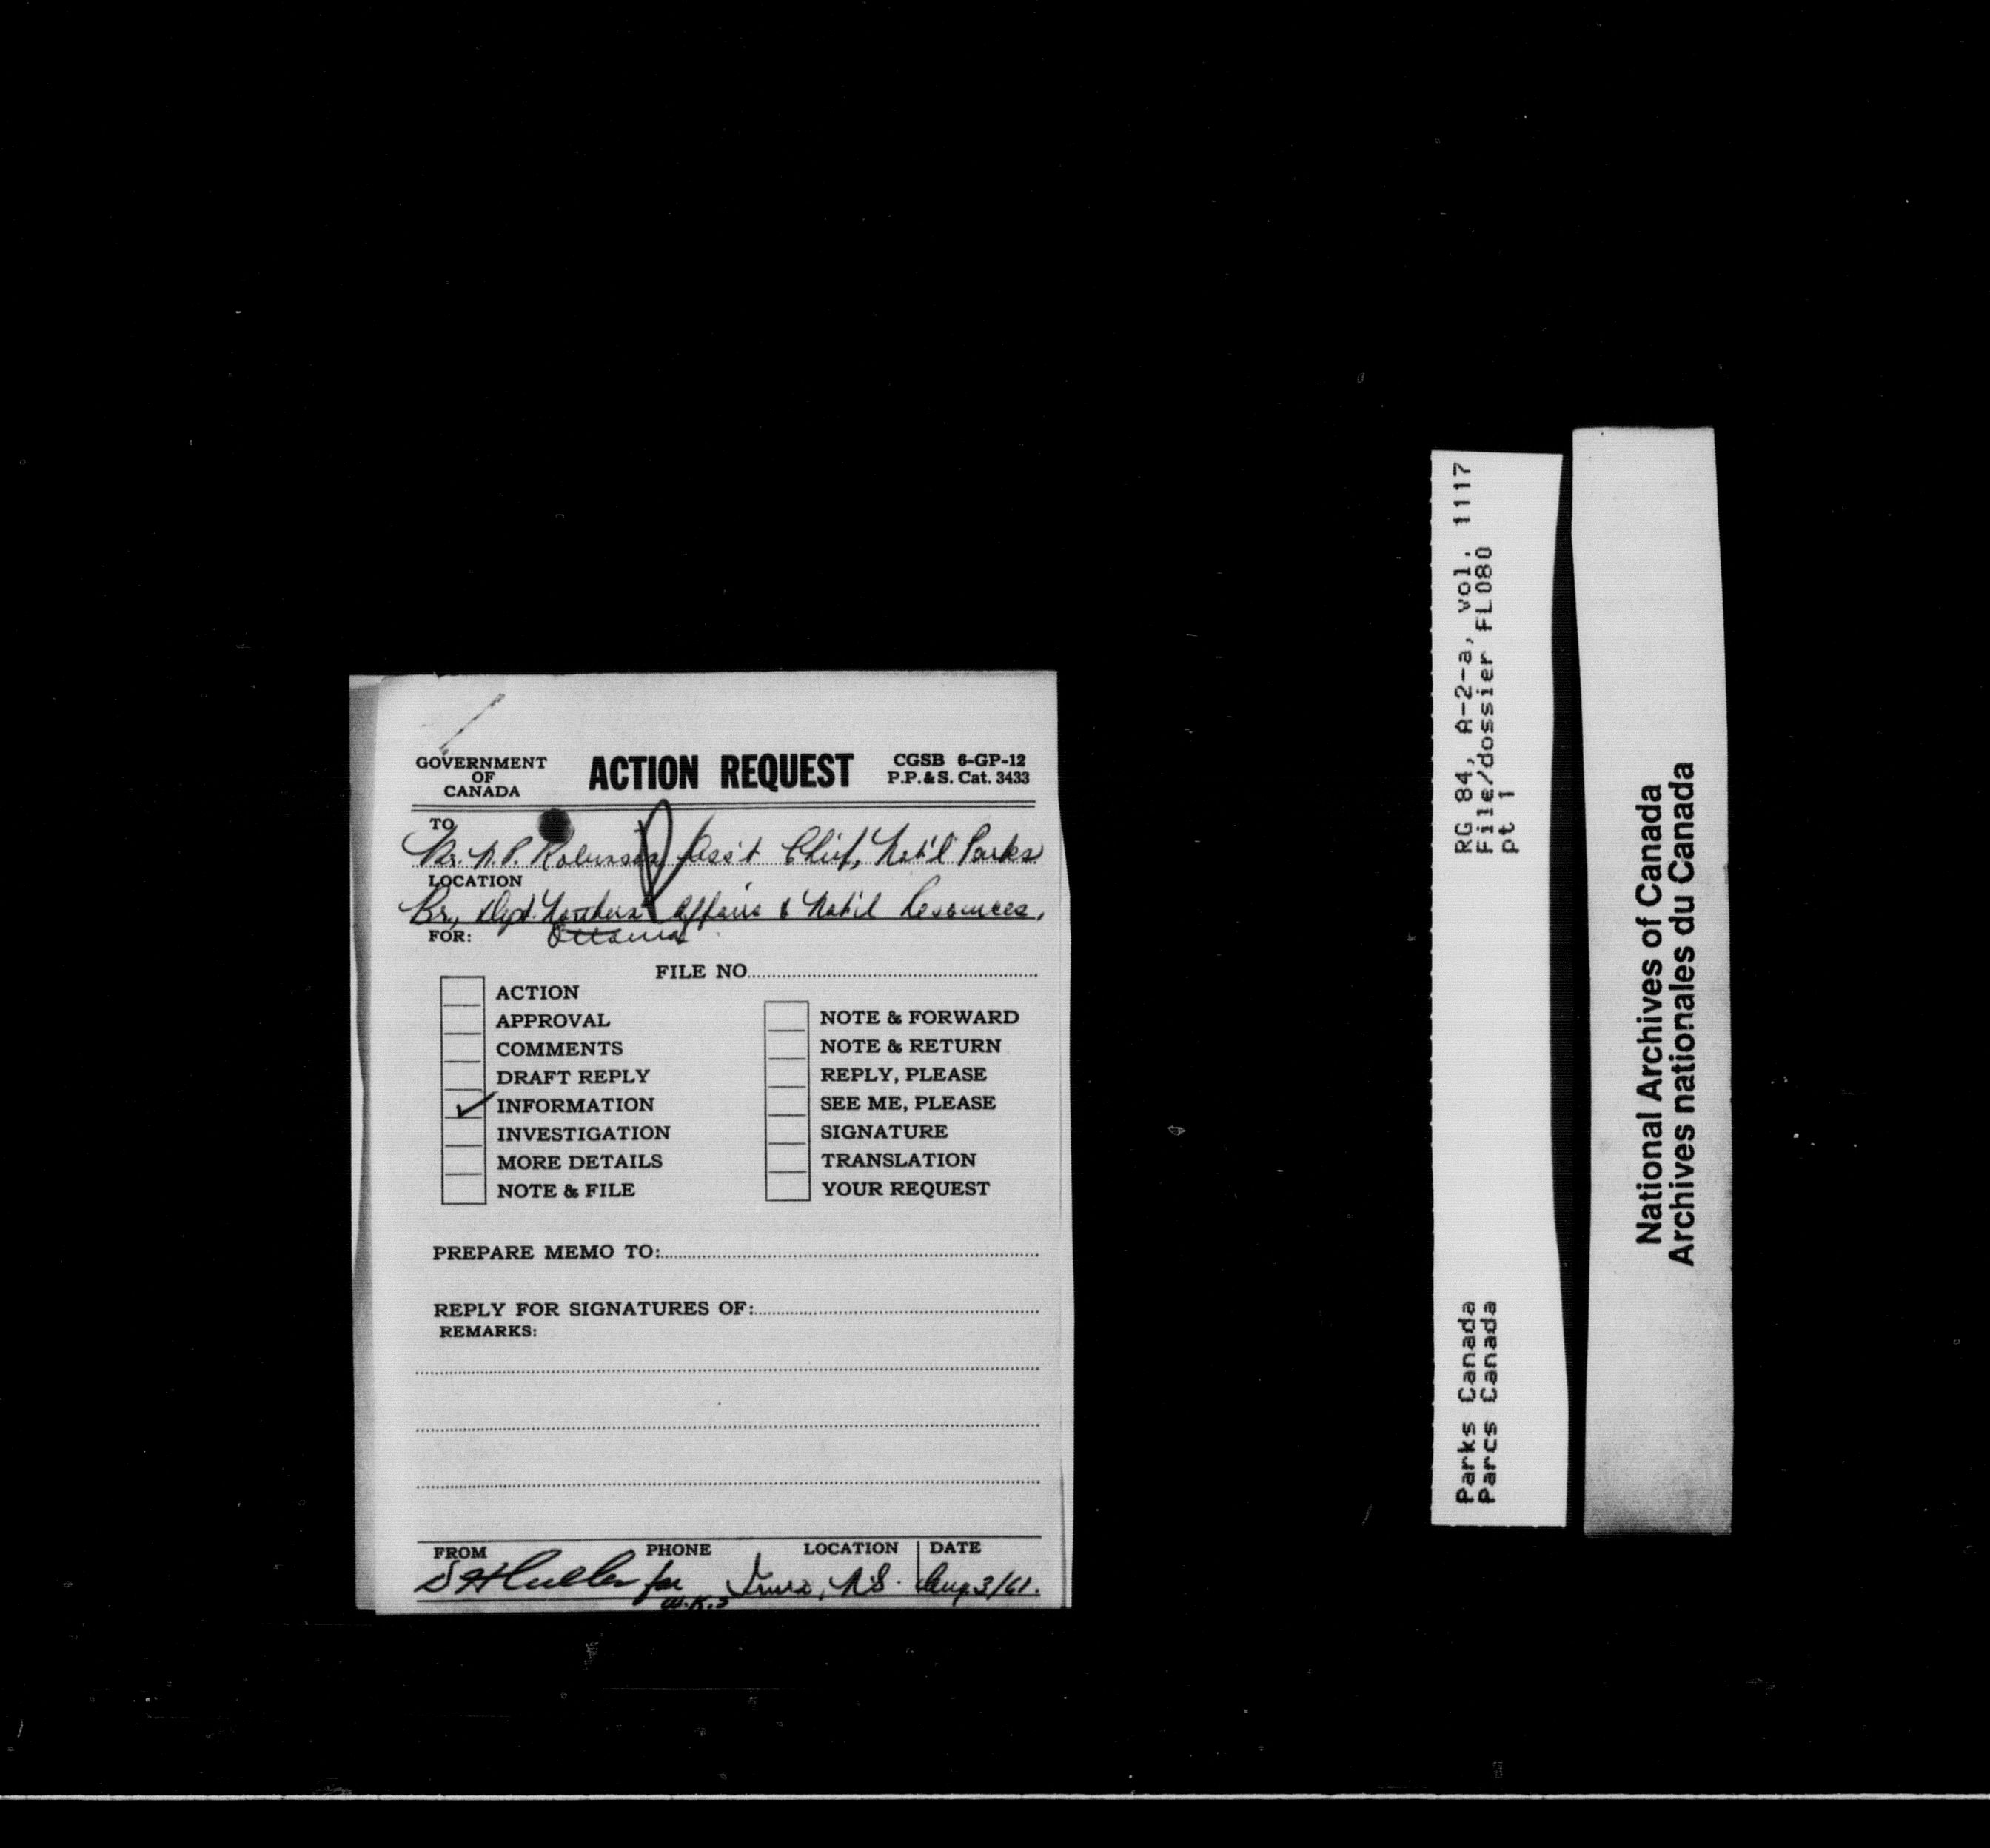 GOVERNMENT
OF
CANADA
ACTION REQUEST
CGSB 6-GP-12
P.P.& S. Cat. 3433
TO
Mr. Robinson, Ass't Chief, Nat'l Parks
LOCATION
Br., Dept. Northern Affairs & Nat'l Resources,
FOR: Ottawa
FILE NO
ACTION
APPROVAL
COMMENTS
DRAFT REPLY
✓ INFORMATION
INVESTIGATION
MORE DETAILS
NOTE & FILE
NOTE & FORWARD
NOTE & RETURN
REPLY, PLEASE
SEE ME, PLEASE
SIGNATURE
TRANSLATION
YOUR REQUEST
PREPARE MEMO TO:
REPLY FOR SIGNATURES OF:
REMARKS:
FROM PHONE LOCATION DATE
for Truro, N.S. Aug. 3/61.
RG 84, A-2-a, vol. 1117
File/dossier FL080
pt 1
Parks Canada
Parcs Canada
National Archives of Canada
Archives nationales du Canada